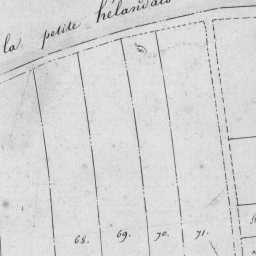 la petite hélandais
68. 69. 70. 71.